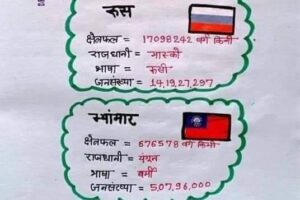 रुस
क्षेत्रफल = 17098242 वर्ग किमी
राजधानी = मास्को
भाषा = रुसी
जनसंख्या = 14,19,27,297
म्यांमार
क्षेत्रफल = 676578 वर्ग किमी
राजधानी = यंगून
भाषा = बर्मी
जनसंख्या = 5,07,96,000